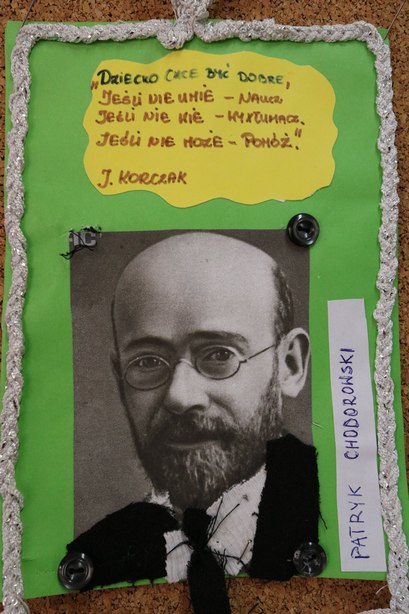 „DZIECKO CHCE BYĆ DOBRE,
JEŚLI NIE UMIE – NAUCZ
JEŚLI NIE WIE – WYTŁUMACZ.
JEŚLI NIE MOŻE – POMÓŻ."
J. KORCZAK
PATRYK CHODOROWSKI